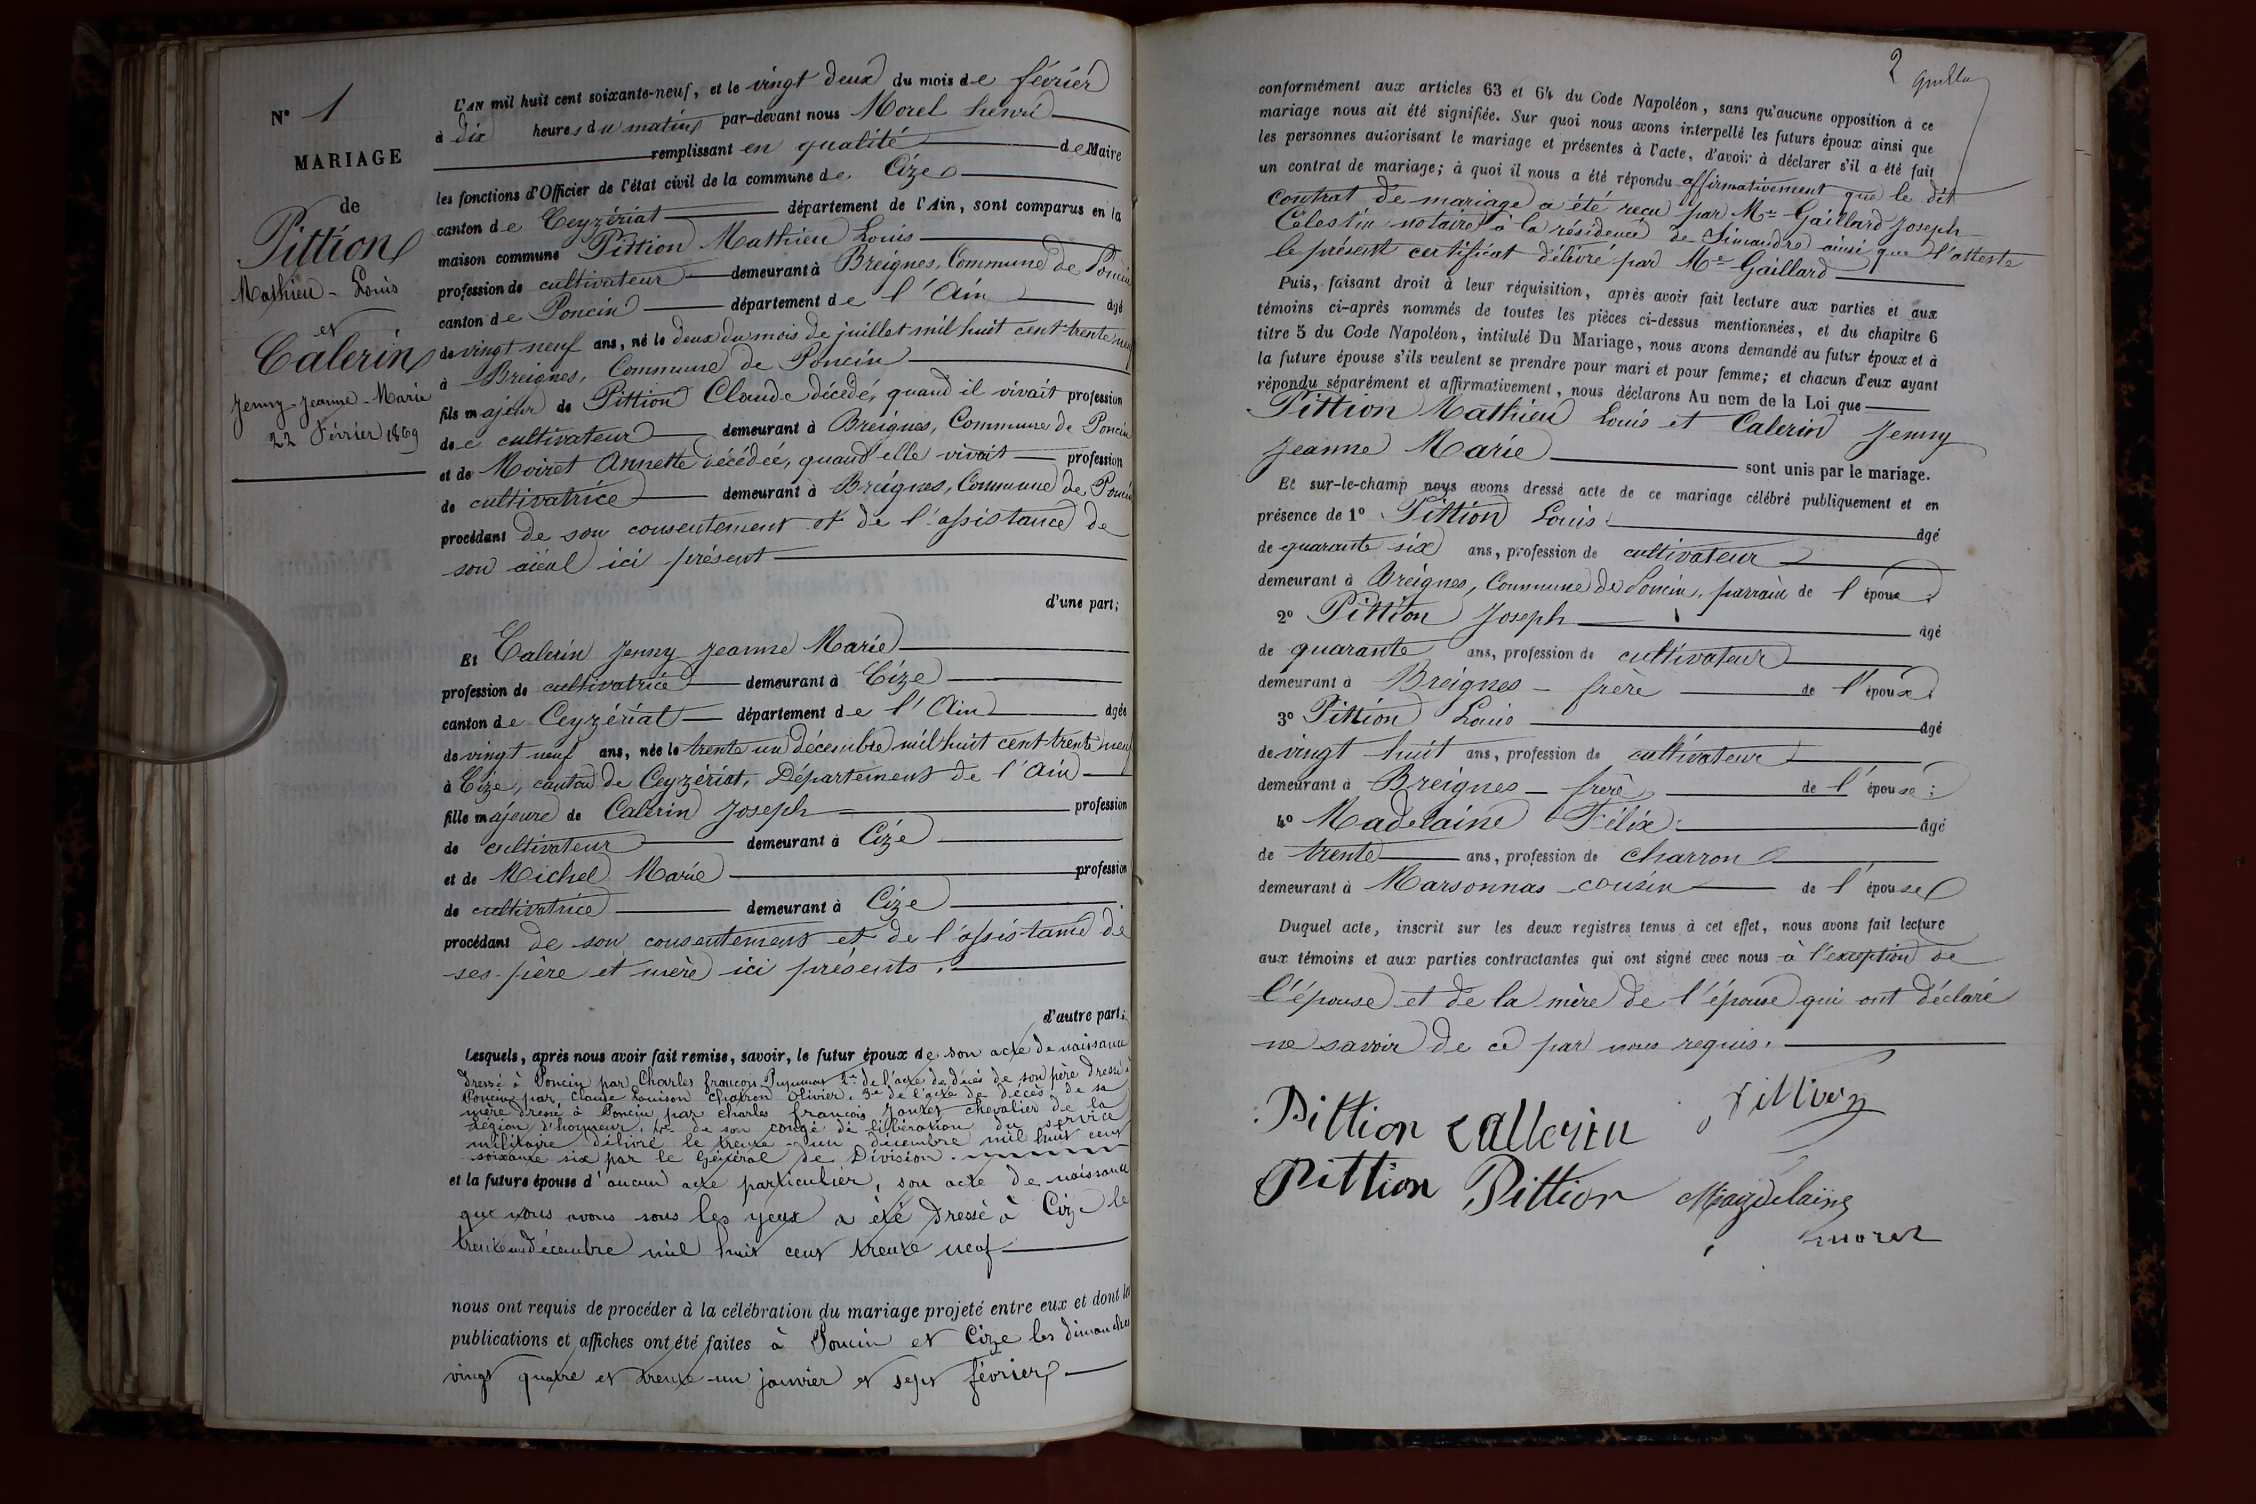 N° 1
MARIAGE
de
Pittion
Mathieu - Louis
et
Calerin
Jenny - Jeanne - Marie
22 Février 1869
L'AN mil huit cent soixante-neuf, et le vingt deux du mois de février
à dix heures du matin par-devant nous Morel henri
remplissant en qualité de Maire
les fonctions d'Officier de l'état civil de la commune de Cize
canton de Ceyzériat département de l'Ain, sont comparus en la
maison commune Pittion Mathieu Louis
profession de cultivateur demeurant à Breignes, Commune de Poncin
canton de Poncin département de l'Ain agé
de vingt neuf ans, né le deux du mois de juillet mil huit cent trente neuf
à Breignes, Commune de Poncin
fils majeur de Pittion Claude décédé, quand il vivait profession
de cultivateur demeurant à Breignes, Commune de Poncin
et de Moiret Annette décédée, quand elle vivait profession
de cultivatrice demeurant à Breignes, Commune de Poncin
procédant de son consentement et de l'assistance de
son aïeul ici présent
d'une part;
Et Calerin Jenny Jeanne Marie
profession de cultivatrice demeurant à Cize
canton de Ceyzériat département de l'Ain agée
de vingt neuf ans, née le trente un décembre mil huit cent trente neuf
à Cize, canton de Ceyzériat, Département de l'Ain
fille majeure de Calerin Joseph profession
de cultivateur demeurant à Cize
et de Michel Marie profession
de cultivatrice demeurant à Cize
procédant de son consentement et de l'assistance de
ses père et mère ici présents.
d'autre part;
Lesquels, après nous avoir fait remise, savoir, le futur époux de son acte de naissance
dressé à Poncin par Charles françois 2° de l'acte de décès de son père dressé à
Poncin par Claude Louison Chatron Olivier. 3° de l'acte de décès de sa
mère dressé à Poncin par charles françois chevalier de la
légion d'honneur. 4° de son congé de libération du service
militaire délivré le trente-un décembre mil huit cent
soixante six par le Général de Division.
et la future épouse d'aucun acte particulier, son acte de naissance
que nous avons sous les yeux a été dressé à Cize le
trente un décembre mil huit cent trente neuf
nous ont requis de procéder à la célébration du mariage projeté entre eux et dont les
publications et affiches ont été faites à Poncin et Cize les dimanches
vingt quatre et trente-un janvier et sept février
2
conformément aux articles 63 et 64 du Code Napoléon, sans qu'aucune opposition à ce
mariage nous ait été signifiée. Sur quoi nous avons interpellé les futurs époux ainsi que
les personnes autorisant le mariage et présentes à l'acte, d'avoir à déclarer s'il a été fait
un contrat de mariage; à quoi il nous a été répondu affirmativement que le dit
Contrat de mariage a été reçu par Me Gaillard Joseph
Célestin notaire à la résidence de Simandre ainsi que l'atteste
le présent certificat délivré par Me Gaillard
Puis, faisant droit à leur réquisition, après avoir fait lecture aux parties et aux
témoins ci-après nommés de toutes les pièces ci-dessus mentionnées, et du chapitre 6
titre 5 du Code Napoléon, intitulé Du Mariage, nous avons demandé au futur époux et à
la future épouse s'ils veulent se prendre pour mari et pour femme; et chacun d'eux ayant
répondu séparément et affirmativement, nous déclarons Au nom de la Loi que
Pittion Mathieu Louis et Calerin Jenny
Jeanne Marie sont unis par le mariage.
Et sur-le-champ nous avons dressé acte de ce mariage célébré publiquement et en
présence de 1° Pittion Louis agé
de quarante six ans, profession de cultivateur
demeurant à Breignes, Commune de Poncin, parrain de l'époux;
2° Pittion Joseph agé
de quarante ans, profession de cultivateur
demeurant à Breignes - frère de l'époux;
3° Pittion Louis agé
de vingt huit ans, profession de cultivateur
demeurant à Breignes - frère de l'épousé;
4° Madelaine Félix agé
de trente ans, profession de charron
demeurant à Marsonnas cousin de l'épouse
Duquel acte, inscrit sur les deux registres tenus à cet effet, nous avons fait lecture
aux témoins et aux parties contractantes qui ont signé avec nous à l'exception de
l'épouse et de la mère de l'épouse qui ont déclaré
ne savoir de ce par nous requis.
Pittion Callerin Pittion
Pittion Pittion Magdelaine
morel